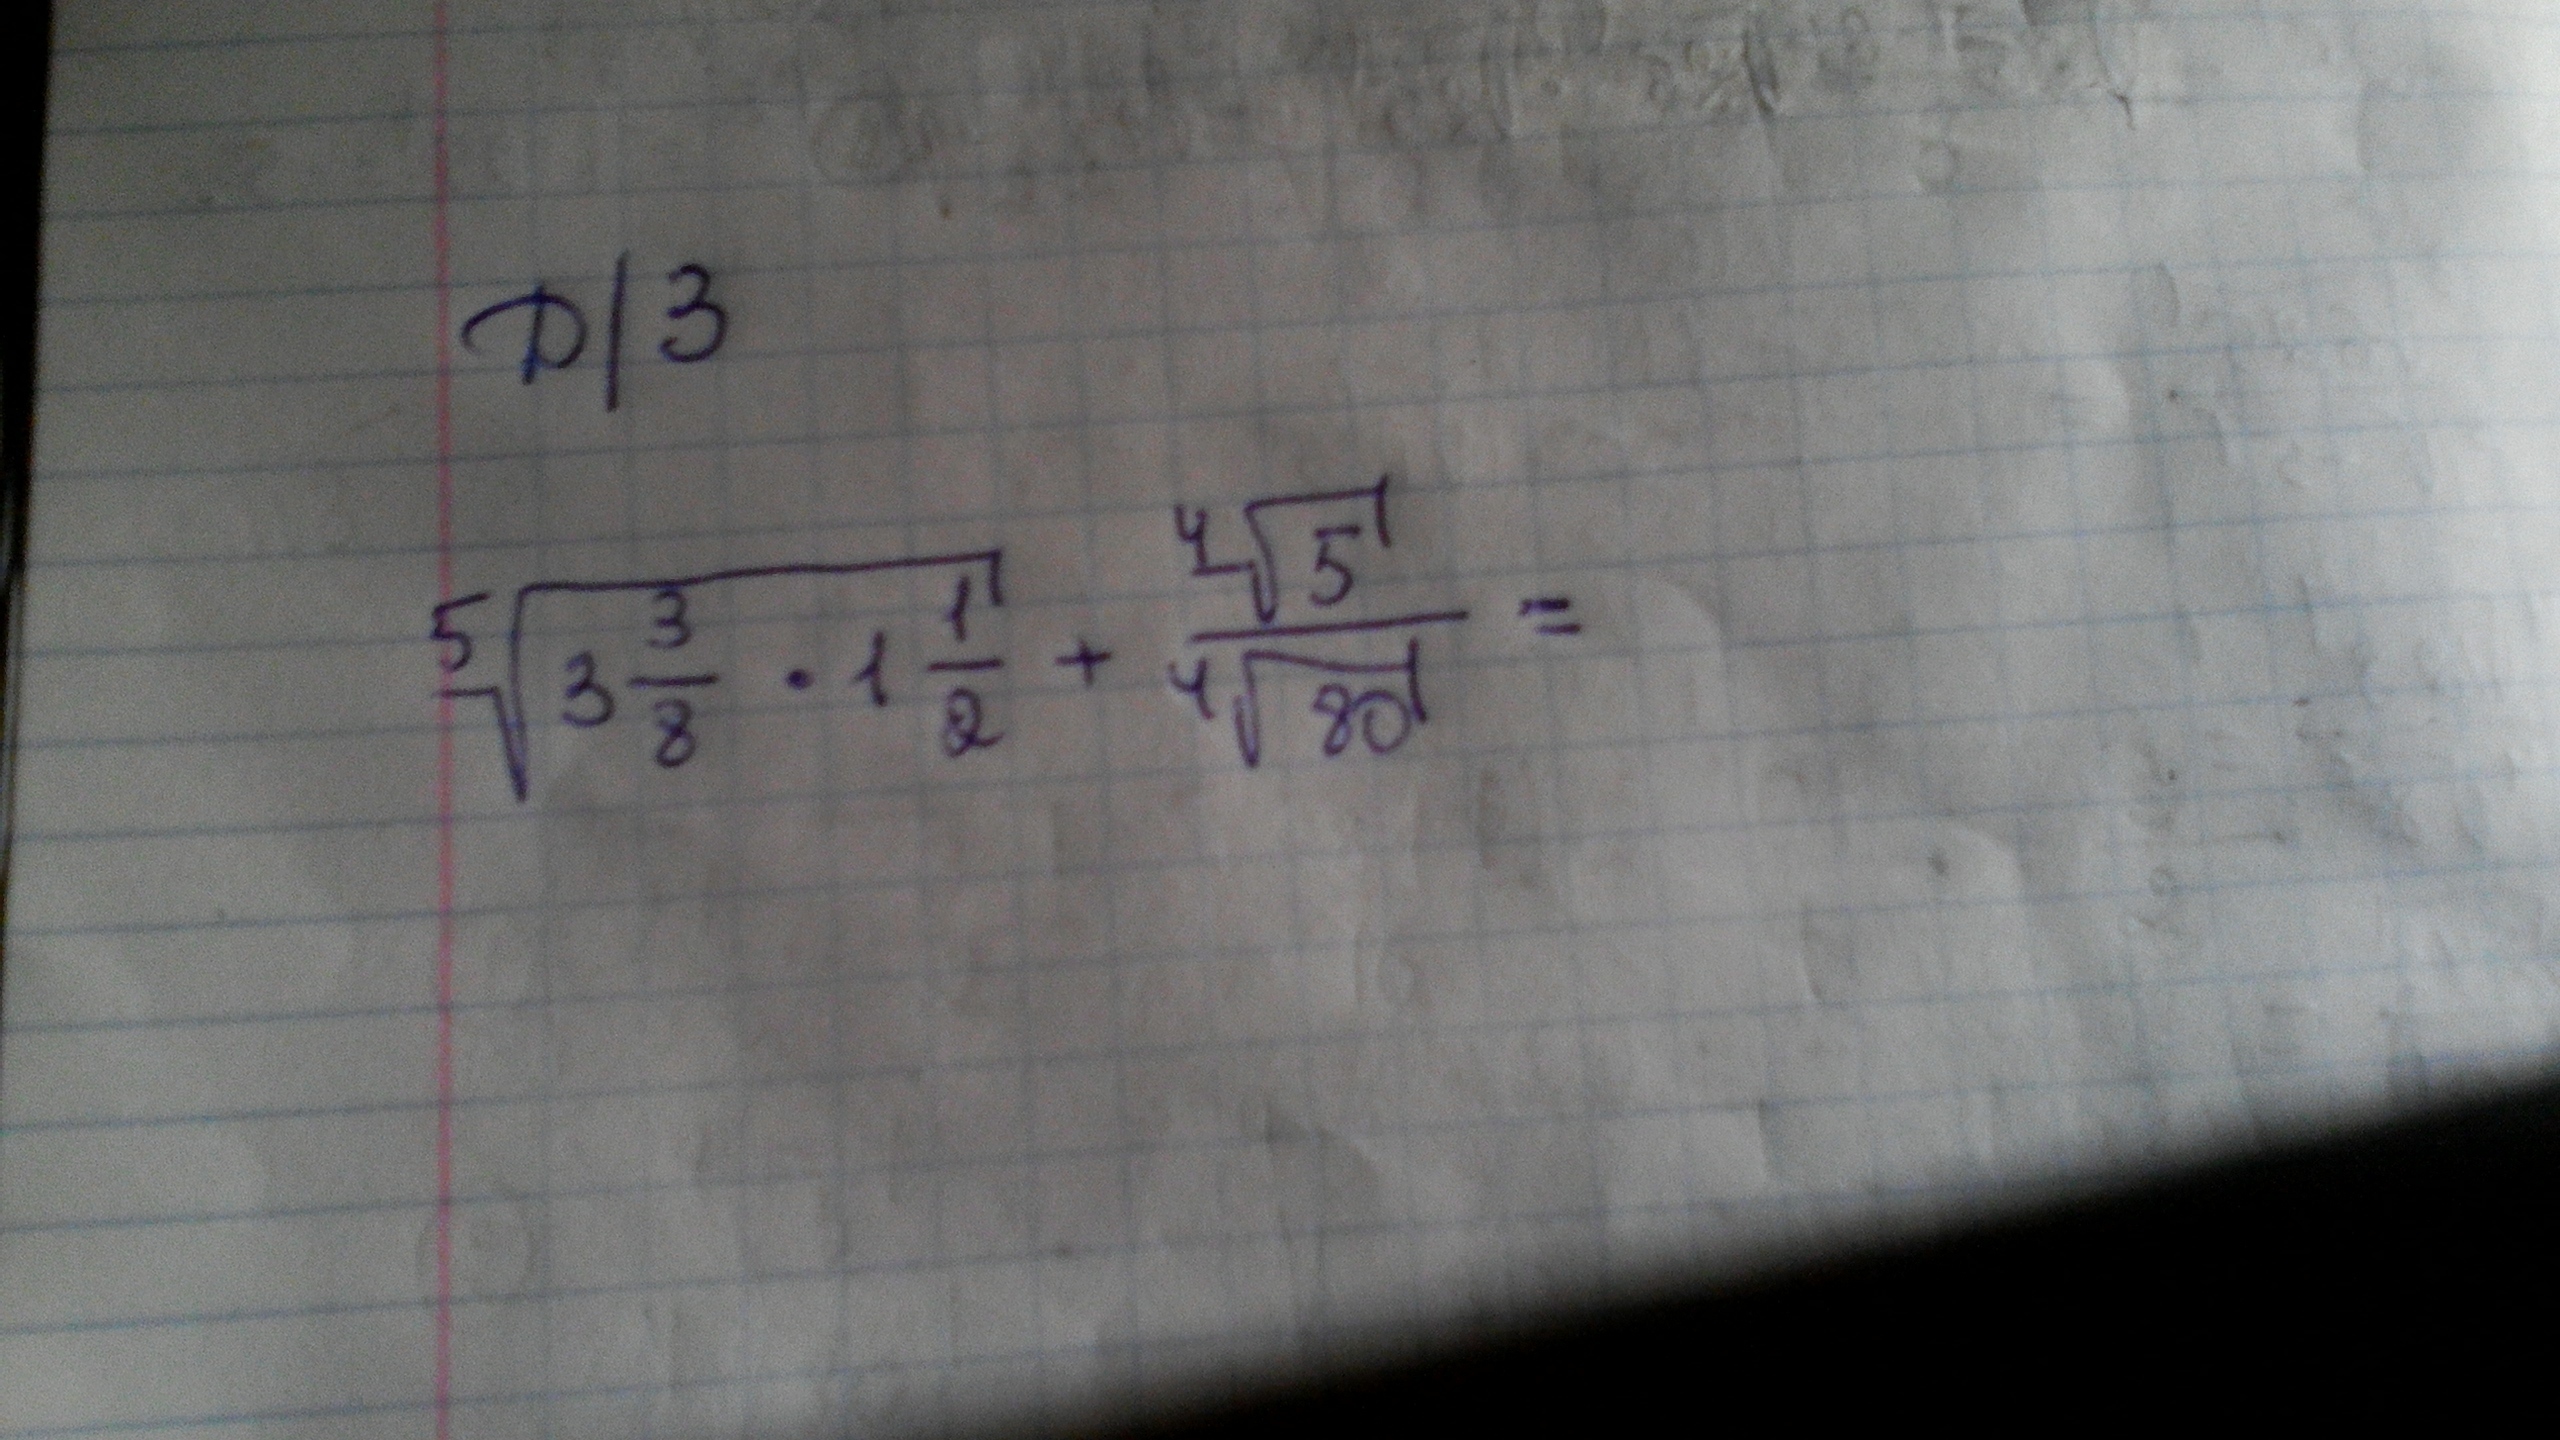 Д/З
⁵√(3 3/8 · 1 1/2) + ⁴√5 / ⁴√80 =